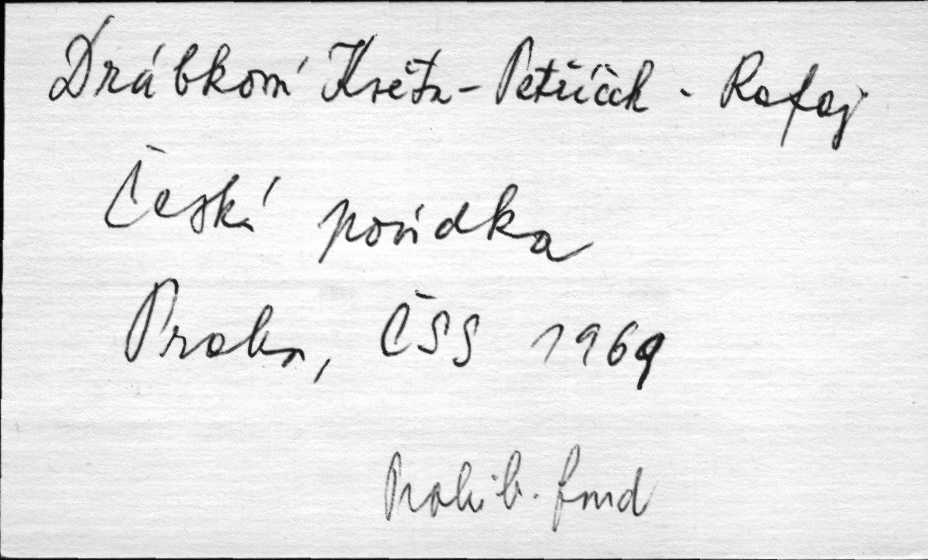 Drábková Květa - Petříček - Rafaj
Česká povídka
Praha, ČSS 1969
Prohib. fond